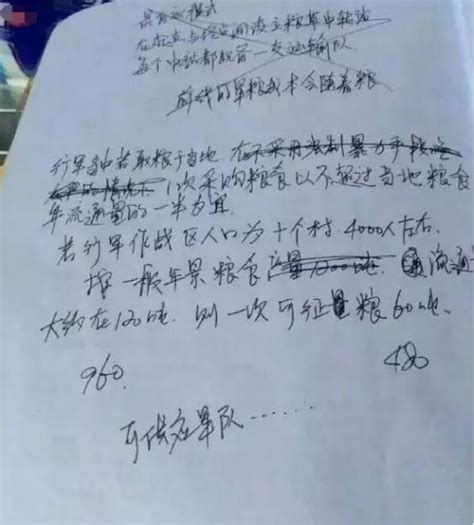 在起点与终点间设立粮草中转站
每个中站都设置一支运输队
行军当中若取粮于当地. 在不采用强制暴力手段
的情况下 1次采购粮食以不超过当地粮食
年流通量的一半为宜.
若行军作战区人口为十个村. 4000人左右.
按一般年景粮食产量1200吨. 流通
大约在120吨. 则一次可征量粮60吨.
960. 480
可供应军队……